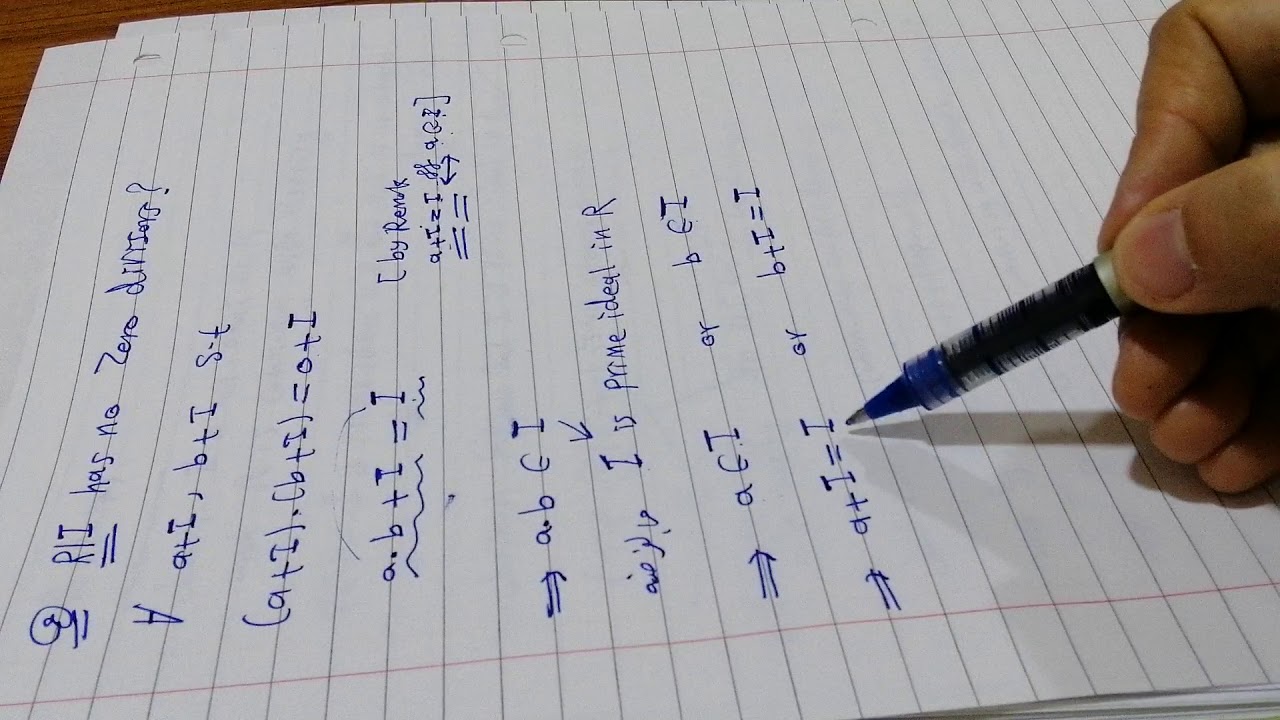 ③ R/I has no Zero divisors?
∀ a+I, b+I s.t
(a+I).(b+I)=0+I
a.b+I=I [by Remark
a+I=I iff a∈I]
⇒ a.b∈I
I is prime ideal in R
⇒ a∈I or b∈I
⇒ a+I=I or b+I=I